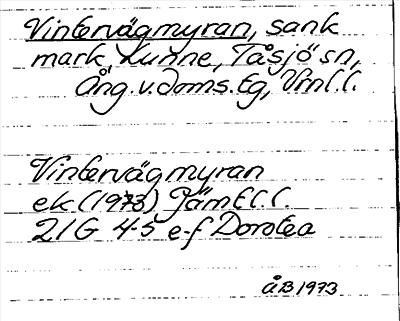 Vintervägmyran, sank
mark, Kunne, Tåsjö sn,
Ång. v. doms. tg, Vrnl. l.
Vintervägmyran
ek (1973) Jämtl. l.
21G 4-5 e-f Dorotea
ÅB 1973